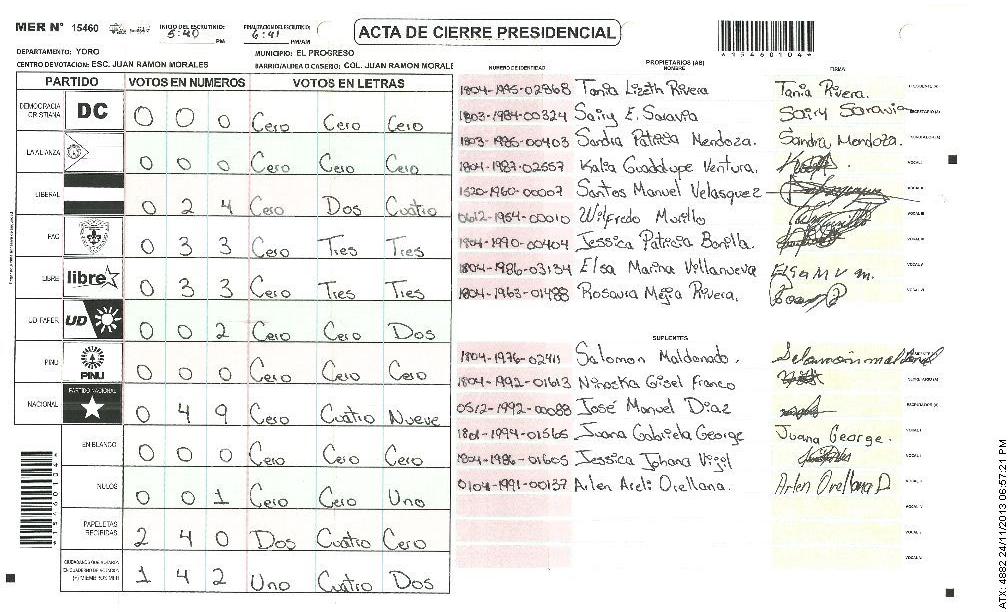 MER N° 15460
INICIO DEL ESCRUTINIO: 5:40 PM
FINALIZACION DEL ESCRUTINIO: 6:41 PM/AM
ACTA DE CIERRE PRESIDENCIAL
*15460104*
DEPARTAMENTO: YORO
MUNICIPIO: EL PROGRESO
CENTRO DE VOTACION: ESC. JUAN RAMON MORALES
BARRIO/ALDEA O CASERIO: COL. JUAN RAMON MORALE
PARTIDO VOTOS EN NUMEROS VOTOS EN LETRAS
DEMOCRACIA CRISTIANA DC 0 0 0 Cero Cero Cero
LA ALIANZA 0 0 0 Cero Cero Cero
LIBERAL 0 2 4 Cero Dos Cuatro
PAC 0 3 3 Cero Tres Tres
LIBRE libre 0 3 3 Cero Tres Tres
UD FAPER UD 0 0 2 Cero Cero Dos
PINU PINU 0 0 0 Cero Cero Cero
NACIONAL PARTIDO NACIONAL 0 4 9 Cero Cuatro Nueve
EN BLANCO 0 0 0 Cero Cero Cero
NULOS 0 0 1 Cero Cero Uno
PAPELETAS RECIBIDAS 2 4 0 Dos Cuatro Cero
CIUDADANOS QUE VOTARON EN CUADERNO DE VOTACION (+) MIEMBROS MER 1 4 2 Uno Cuatro Dos
NUMERO DE IDENTIDAD PROPIETARIOS (AS) NOMBRE FIRMA
1804-1995-02868 Tania Lizeth Rivera Tania Rivera. PRESIDENTE (A)
1803-1984-00324 Sairy E. Saravia Sairy Saravia SECRETARIO (A)
1803-1985-00403 Sandra Patricia Mendoza. Sandra Mendoza. ESCRUTADOR (A)
1804-1987-02557 Katia Guadalupe Ventura. VOCAL I
1520-1960-00007 Santos Manuel Velasquez VOCAL II
0612-1954-00010 Wilfredo Murillo VOCAL III
1804-1990-00404 Jessica Patricia Bonilla. VOCAL IV
1804-1986-03134 Elsa Marina Villanueva Elsa M V m. VOCAL V
1804-1963-01488 Rosaura Mejia Rivera. VOCAL VI
SUPLENTES
1804-1976-02411 Salomon Maldonado. Salomón maldonad
1804-1992-01613 Ninoska Gisel Franco
0512-1992-00088 José Manuel Diaz ESCRUTADOR (A)
1801-1994-01565 Juana Gabriela George Juana George. VOCAL I
1804-1986-01605 Jessica Johana Vigil
0104-1991-00137 Arlen Areli Orellana. Arlen Orellana D
ATX: 4882 24/11/2013 06:57:21 PM